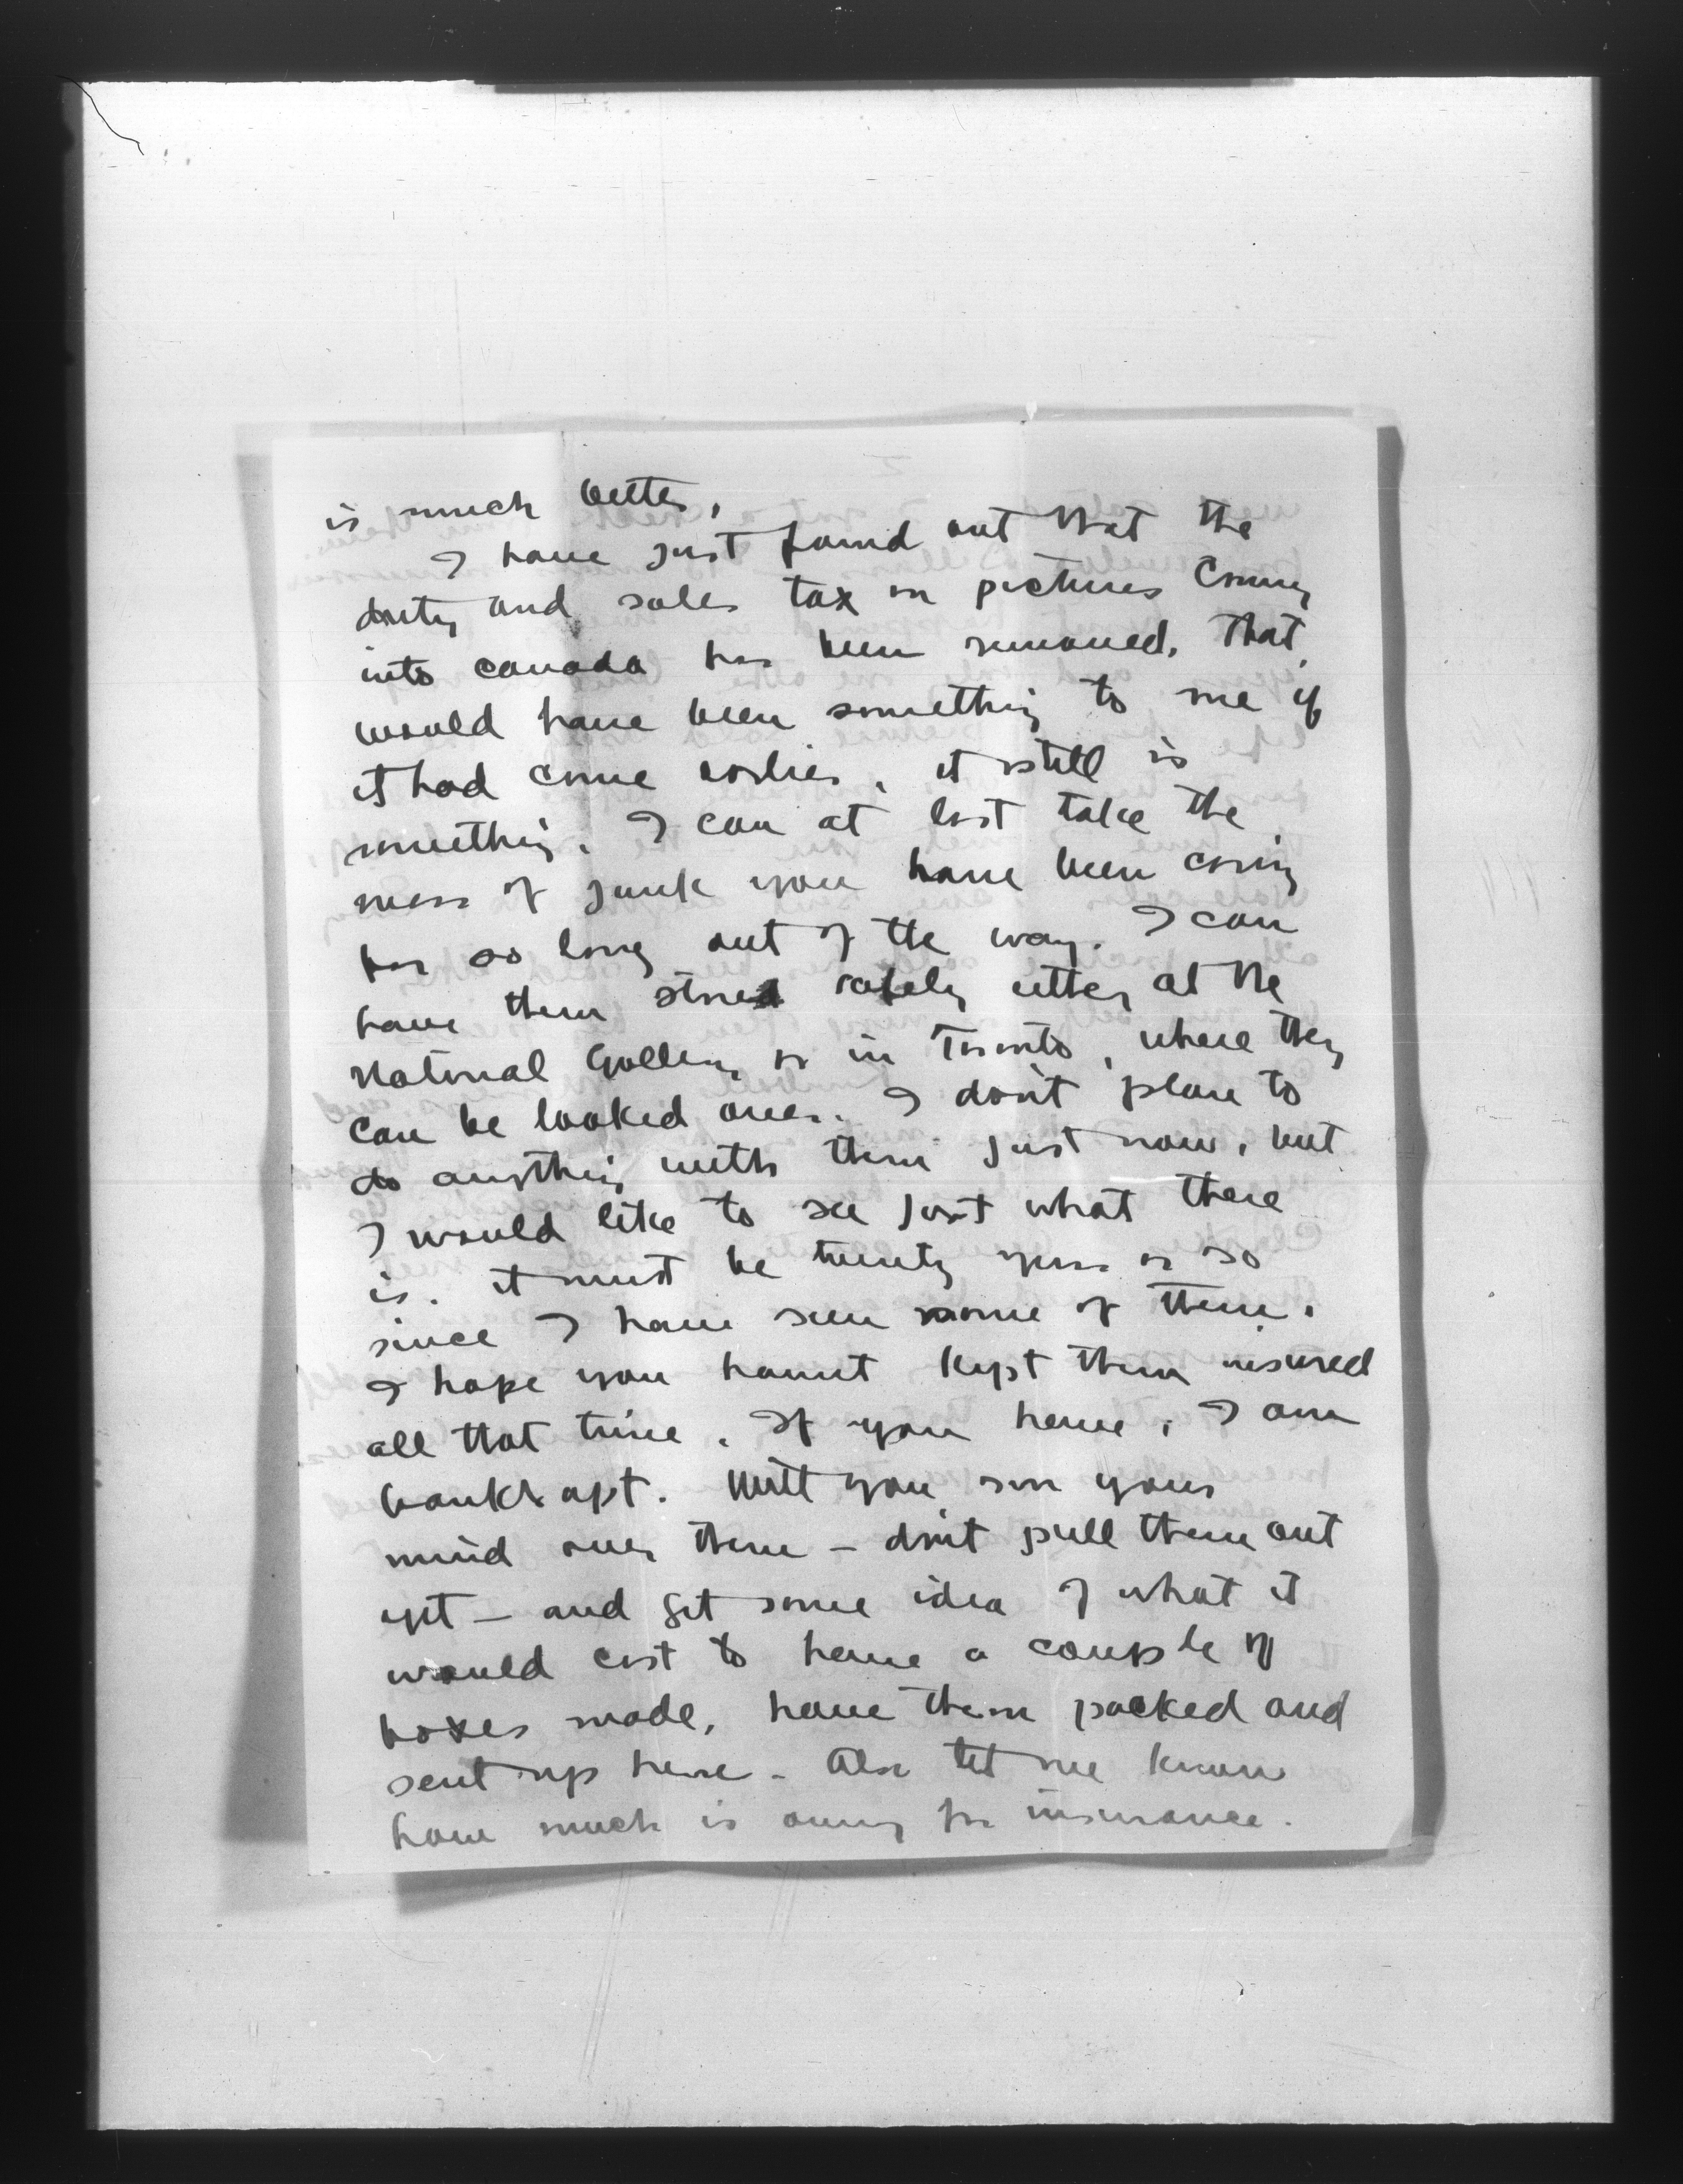 is much better,
I have just found out that the
duty and sales tax on pictures coming
into canada has been removed. That
would have been something to me if
it had come earlier, it still is
something. I can at last take the
mess of junk you have been caring
for so long out of the way. I can
have them stored safely either at the
National Gallery or in Toronto, where they
can be looked over. I don't plan to
do anything with them just now, but
I would like to see just what there
is. it must be twenty years or so
since I have seen some of them.
I hope you havnt kept them insured
all that time. If you have, I am
bankrupt. Will you run your
mind over them - don't pull them out
yet - and get some idea of what it
would cost to have a couple of
boxes made, have them packed and
sent up here - Also let me know
how much is owing for insurance.